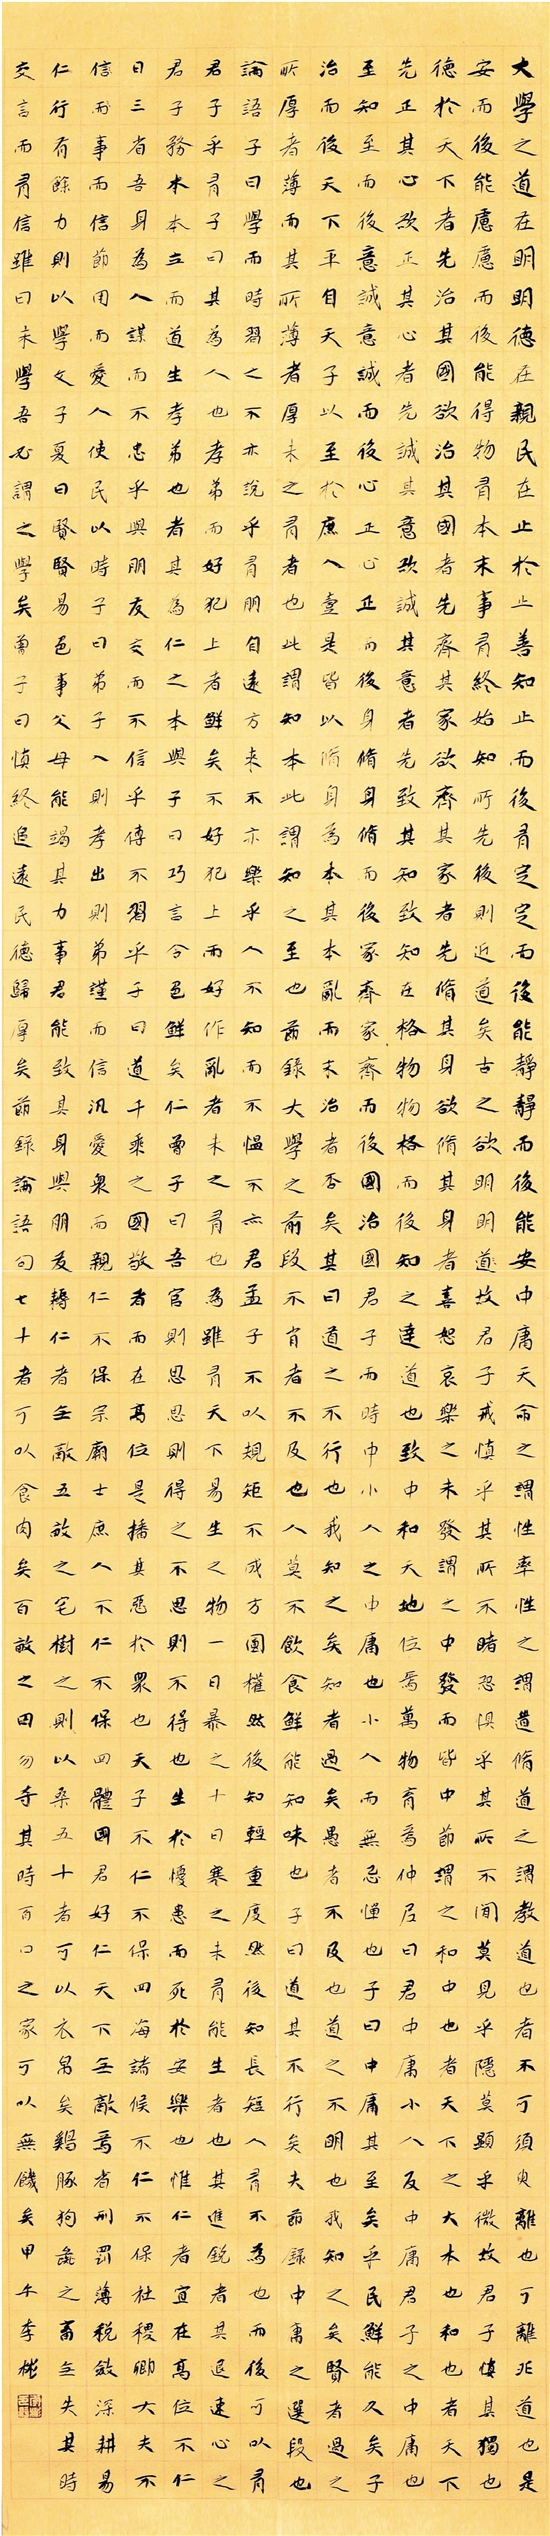 大學之道在明明德在親民在止於止善知止而後有定定而後能靜靜而後能安中庸天命之謂性率性之謂道脩道之謂教道也者不可須臾離也可離非道也是
安而後能慮慮而後能得物有本末事有終始知所先後則近道矣古之欲明明道故君子戒慎乎其所不睹恐懼乎其所不聞莫見乎隱莫顯乎微故君子慎其獨也
德於天下者先治其國欲治其國者先齊其家欲齊其家者先脩其身欲脩其身者喜怒哀樂之未發謂之中發而皆中節謂之和中也者天下之大本也和也者天下
先正其心欲正其心者先誠其意欲誠其意者先致其知致知在格物物格而後知之達道也致中和天地位焉萬物育焉仲尼曰君中庸小人反中庸君子之中庸也
至知至而後意誠意誠而後心正心正而後身脩身脩而後家齊家齊而後國治國君子而時中小人之中庸也小人而無忌憚也子曰中庸其至矣乎民鮮能久矣子
治而後天下平自天子以至於庶人壹是皆以脩身為本其本亂而末治者否矣其曰道之不行也我知之矣知者過矣愚者不及也道之不明也我知之矣賢者過之
所厚者薄而其所薄者厚未之有者也此謂知本此謂知之至也節錄大學之前段不肖者不及也人莫不飲食鮮能知味也子曰道其不行矣夫節錄中庸之選段也
論語子曰學而時習之不亦說乎有朋自遠方來不亦樂乎人不知而不慍不亦君孟子不以規矩不成方圓權然後知輕重度然後知長短人有不為也而後可以有
君子乎有子曰其為人也孝弟而好犯上者鮮矣不好犯上而好作亂者未之有也為雖有天下易生之物一日暴之十日寒之未有能生者也其進銳者其退速心之
君子務本本立而道生孝弟也者其為仁之本與子曰巧言令色鮮矣仁曾子曰吾官則思思則得之不思則不得也生於憂患而死於安樂也惟仁者宜在高位不仁
日三省吾身為人謀而不忠乎與朋友交而不信乎傳不習乎子曰道千乘之國敬者而在高位是播其惡於眾也天子不仁不保四海諸侯不仁不保社稷卿大夫不
信而事而信節用而愛人使民以時子曰弟子入則孝出則弟謹而信汎愛眾而親仁不保宗廟士庶人不仁不保四體國君好仁天下無敵焉省刑罰薄稅斂深耕易
仁行有餘力則以學文子夏曰賢賢易色事父母能竭其力事君能致其身與朋友耨仁者無敵五畝之宅樹之則以桑五十者可以衣帛矣鷄豚狗彘之畜無失其時
交言而有信雖曰未學吾必謂之學矣曾子曰慎終追遠民德歸厚矣節錄論語句七十者可以食肉矣百畝之田勿夺其時百口之家可以無饑矣甲午李